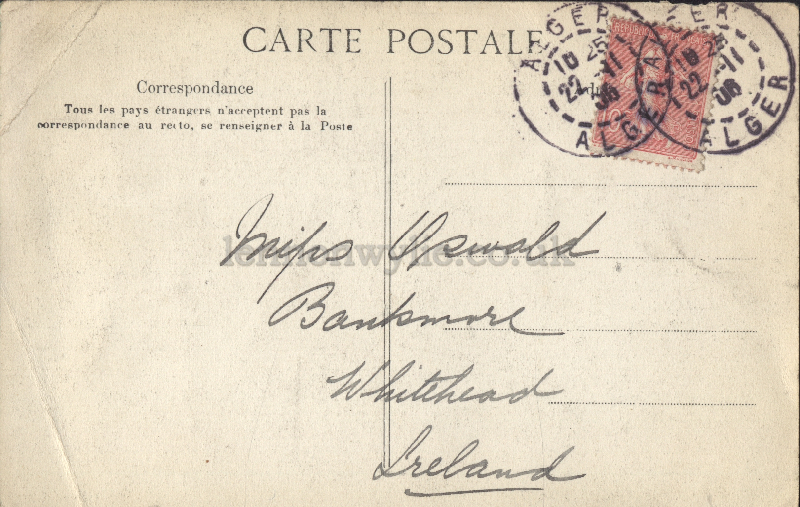 CARTE POSTALE
Correspondance
Tous les pays étrangers n'acceptent pas la
correspondance au recto, se renseigner à la Poste
ALGER
10 25
22 -11
06
ALGER
ALGER
10 25
22 -11
06
ALGER
Miss Oswald
lennonwylie.co.uk
Banksmore
Whitehead
Ireland